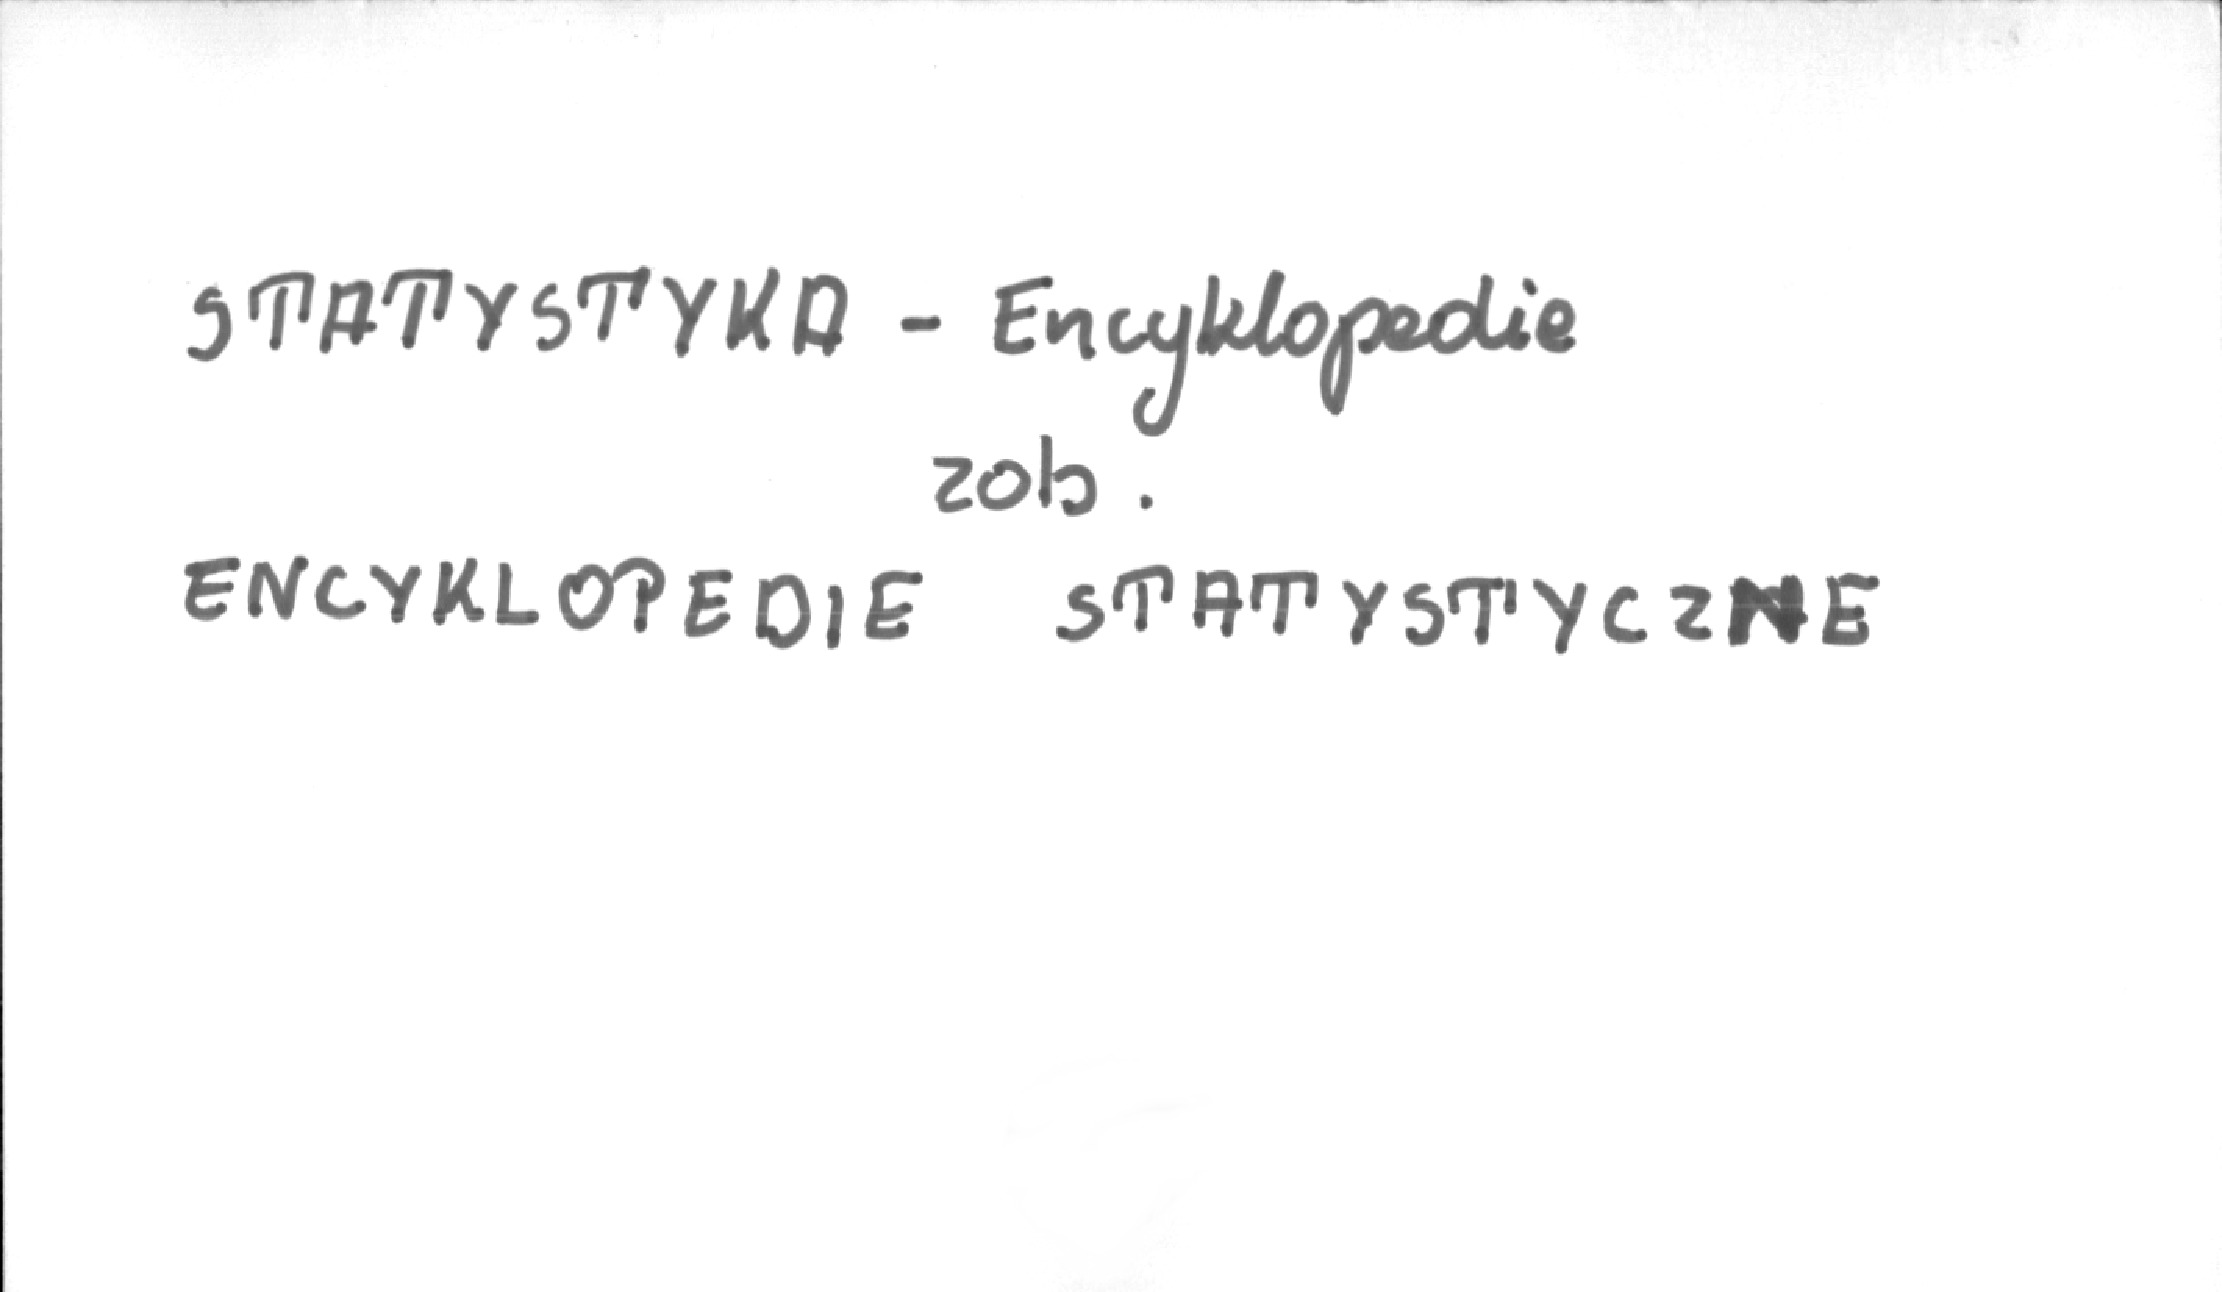 STATYSTYKA - Encyklopedie
zob.
ENCYKLOPEDIE STATYSTYCZNE